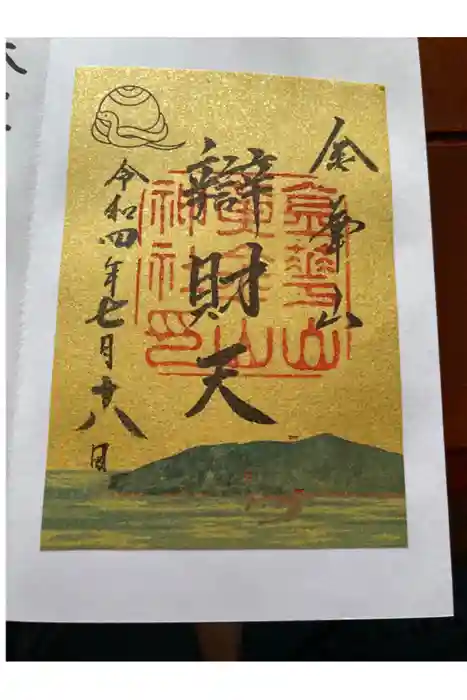 金華山
辯財天
令和四年七月十八日